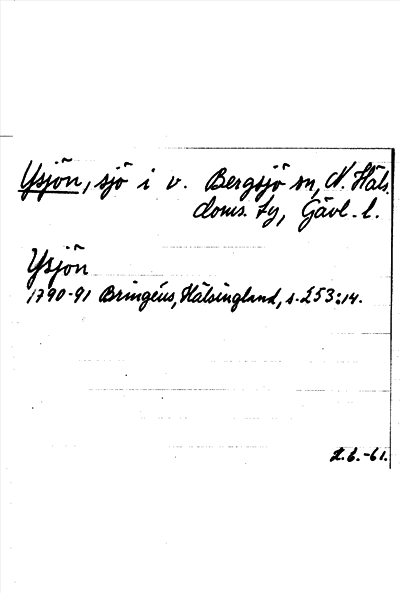 Ysjön, sjö i v. Bergsjö sn, N. Häls.
doms. ty, Gävl. l.
Ysjön
1790-91 Bringéus, Hälsingland, s. 253:14.
2.6.-61.